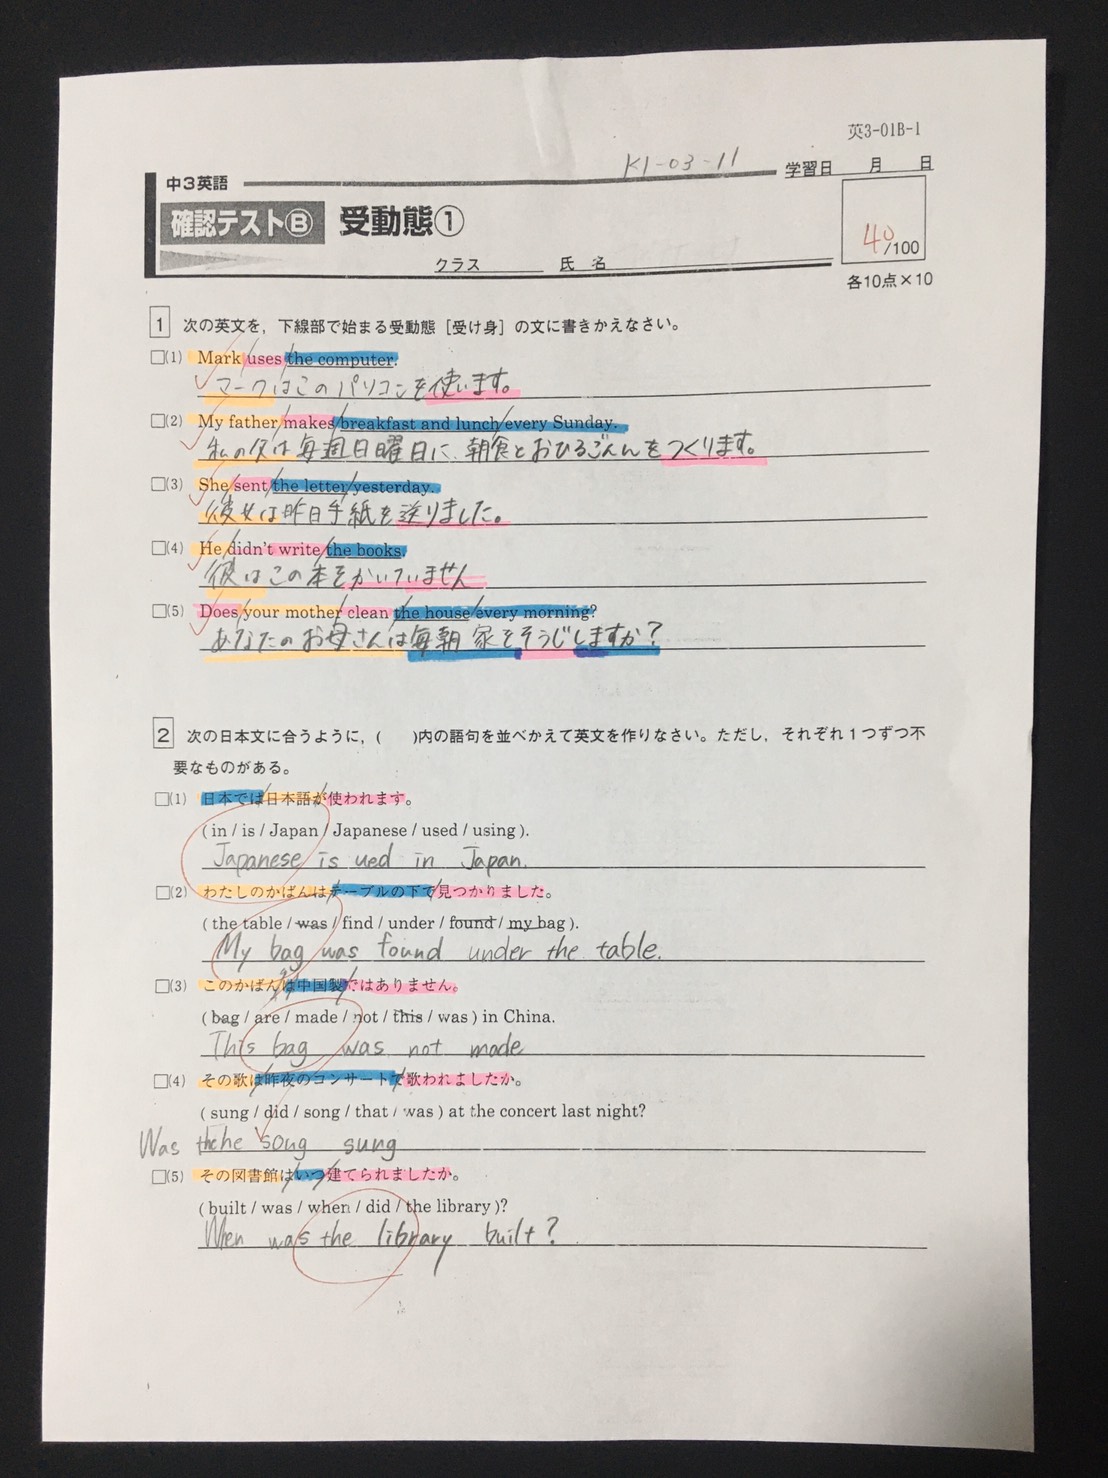 英3-01B-1
K1-03-11
学習日 月 日
中3英語
確認テストⒷ 受動態①
40/100
クラス 氏名
各10点×10
1 次の英文を,下線部で始まる受動態[受け身]の文に書きかえなさい。
□(1) Mark/uses/the computer.
マークはこのパソコンを使います。
□(2) My father/makes/breakfast and lunch/every Sunday.
私の父は毎週日曜日に、朝食とおひるごはんをつくります。
□(3) She/sent/the letter/yesterday.
彼女は昨日手紙を送りました。
□(4) He/didn't write/the books.
彼はこの本をかいていません
□(5) Does/your mother/clean/the house/every morning?
あなたのお母さんは毎朝家をそうじしますか?
2 次の日本文に合うように,( )内の語句を並べかえて英文を作りなさい。ただし,それぞれ1つずつ不
要なものがある。
□(1) 日本では/日本語が/使われます。
( in / is / Japan / Japanese / used / using ).
Japanese is ued in Japan.
□(2) わたしのかばんは/テーブルの下で/見つかりました。
( the table / was / find / under / found / my bag ).
My bag was found under the table.
□(3) このかばんは/中国製/ではありません。
( bag / are / made / not / this / was ) in China.
This bag was not made
□(4) その歌は/昨夜のコンサートで/歌われましたか。
( sung / did / song / that / was ) at the concert last night?
Was song sung
□(5) その図書館は/いつ/建てられましたか。
( built / was / when / did / the library )?
When was the library built?